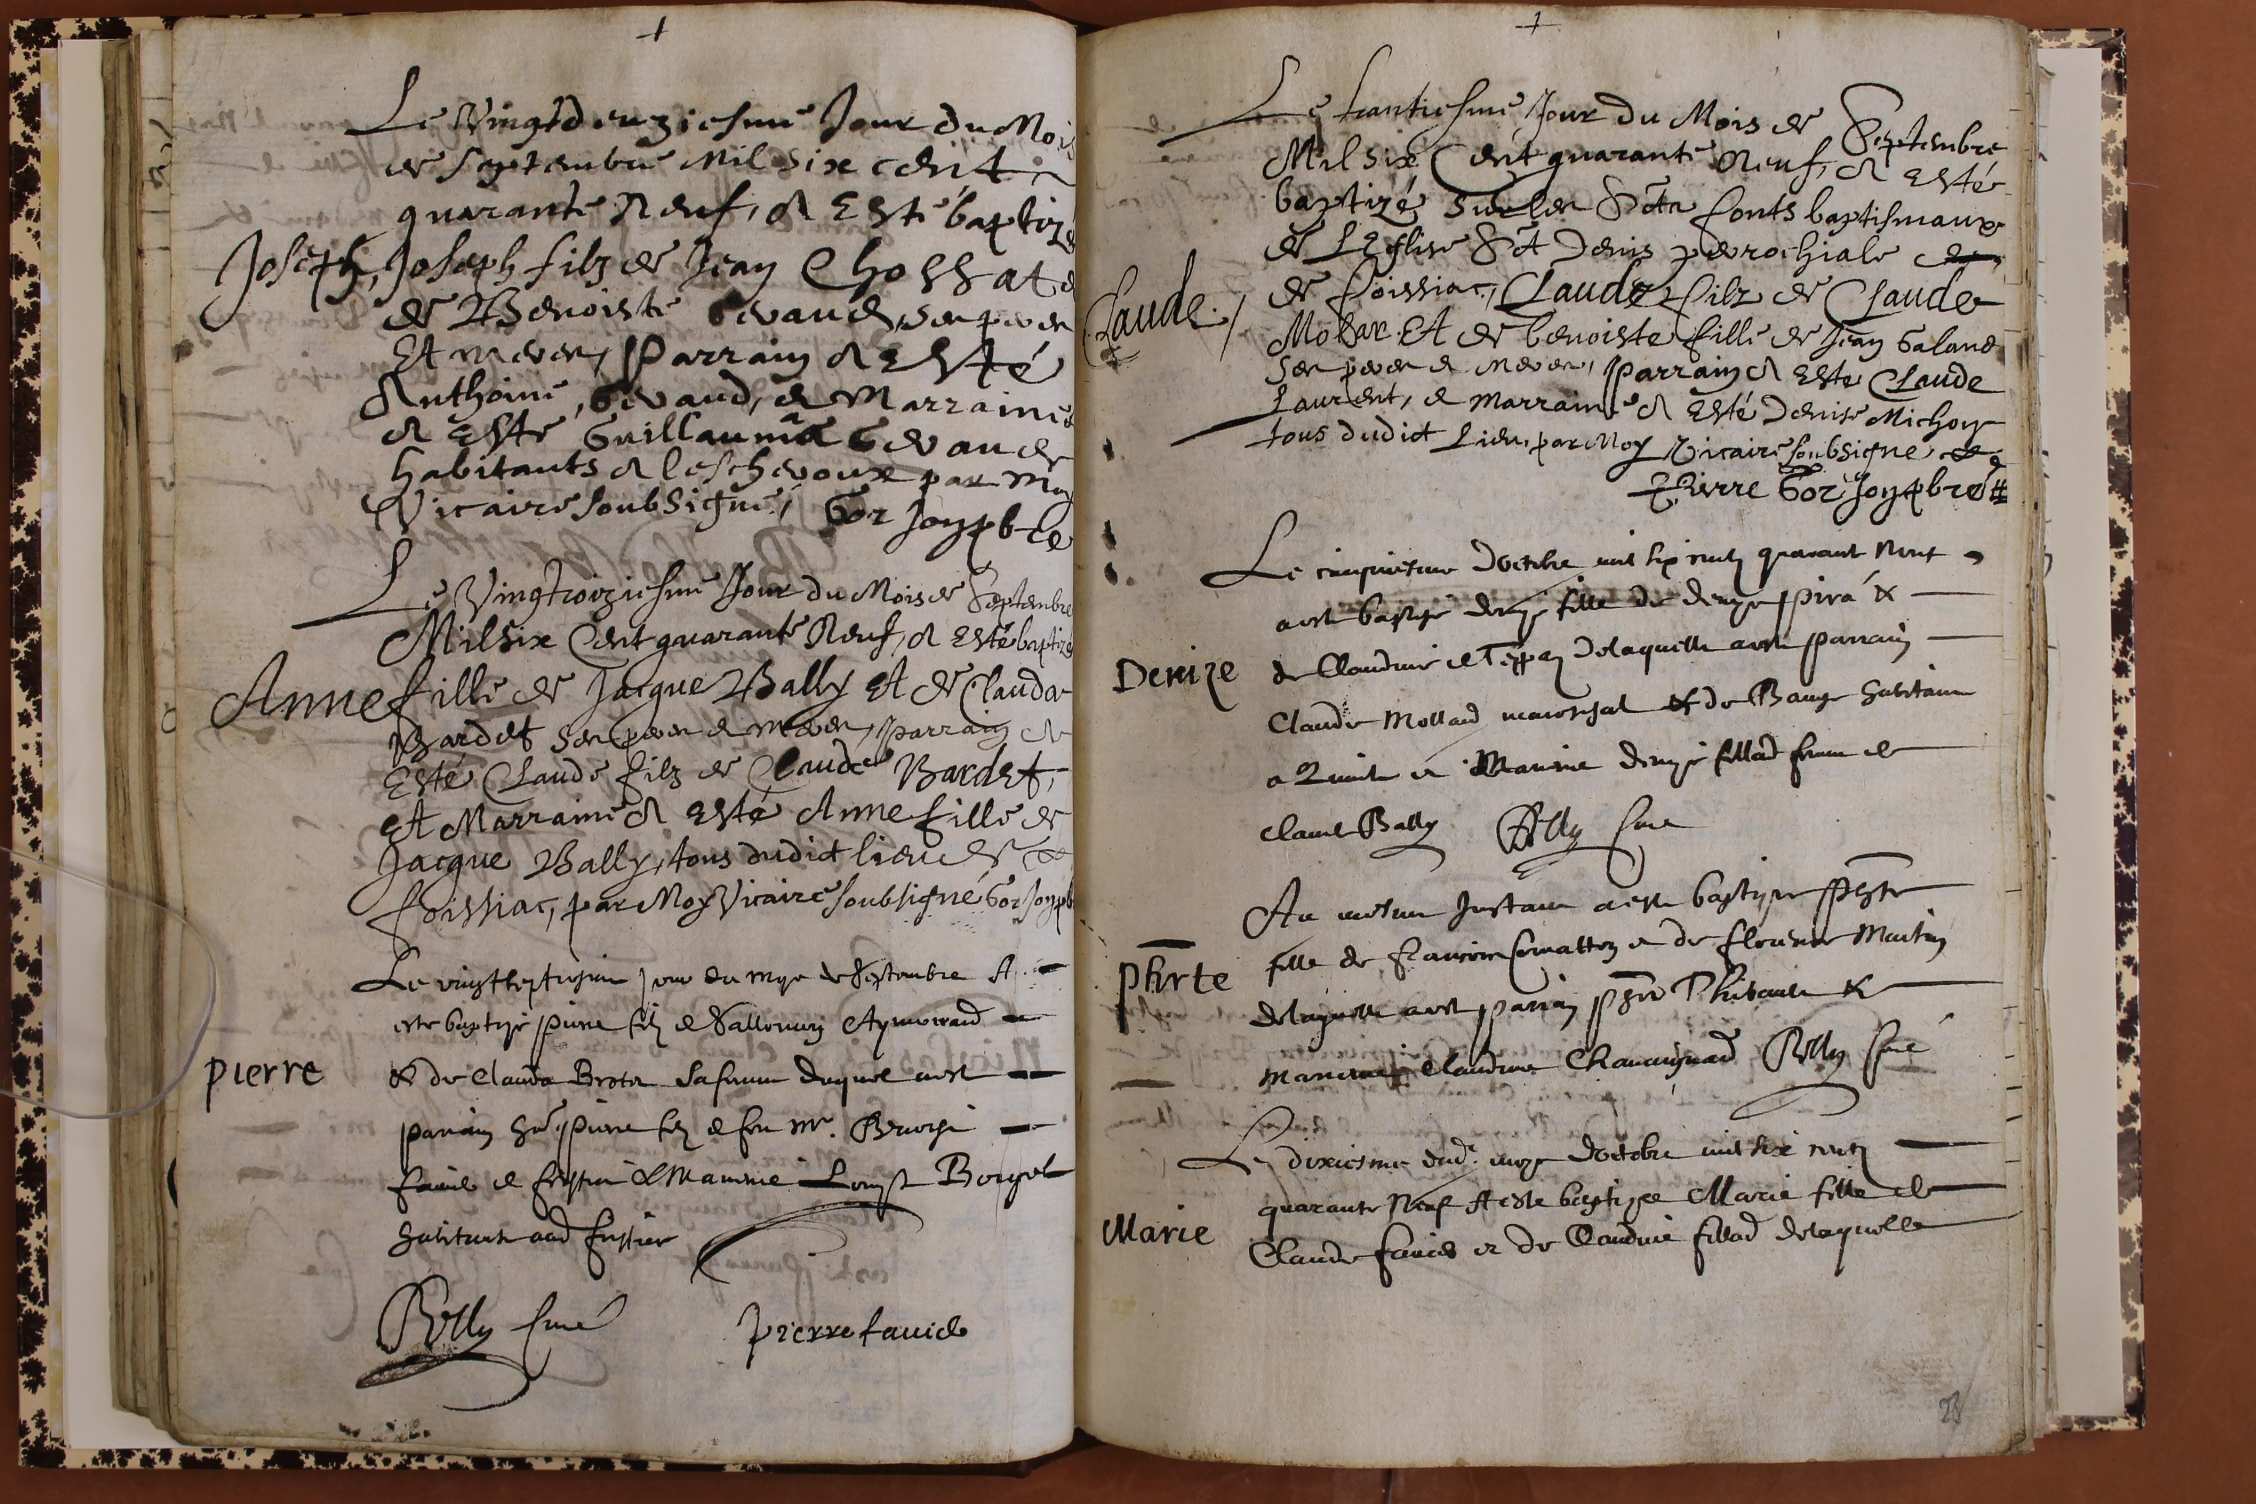 Le Vingtdeuziesme Jour du Mois
de Septembre Mil six cent
quarante Neuf, A Esté baptizé
Joseph, Joseph filz de Jean Chossat et
de Benoiste Gevaud, ses peres
Et meres, Parrain A Esté
Anthoine, Gevaud, et Marraine
A Esté Guillauma Gevaude
habitants A Leschevoux par Moy
Vicaire soubsigné, Gorjonpbre
Le Vingtroiziesme Jour du Mois de Septembre
Mil Six Cent quarante Neuf, A Esté baptizé
Anne fille de Jacque Bally Et de Clauda
Bardet ses peres et meres, Parrain A
Esté Claude filz de Claude Bardet,
Et Marraine A Esté Anne fille de
Jacque Bally, tous dudict lieu de
foissiac, par Moy Vicaire soubsigné Gorjonpb
Le vingtseptiesme jour du moys de Septembre A
este baptizé Pierre filz de Aymerand
Pierre
& de Clauda Brotet sa femme duquel aest
parrain Pierre filz de feu Mr.
& Marraine Loyse Borjet
habitants aud
Relly Curé
pierre favide
Le trantiesme Jour du Mois de Septembre
Mil Six Cent quarante Neuf, A Esté
baptizé sur les Scts fonts baptismaux
de LEglise Sct Denis parrochiale
Claude.
de foissiac, Claude filz de Claude
Molar Et de benoiste fille de Jean Galand
ses peres et meres, Parrain A Esté Claude
Laurent, et Marraine A Esté Denise Michon
tous dudict Lieu, par Moy Vicaire soubsigné
Pierre Gorjonpbre
Le cinquiesme doctobre mil six centz quarant Neuf
aest baptizé denize fille de denys &
Denize
de Claudine delaquelle aest parrain
Claude Mollard mareschal & de Bauge habitant
a et Marraine denize fillod femme de
Claude Bally Relly Cure
Au mesme Instant aeste baptizee Phrte
fille de francois et de Martin
Phrte
delaquelle aest parrain Thibaude &
marraine Claudine Relly Curé
Le dixiesme dud. moys doctobre mil six centz
quarante Neuf A este baptizee Marie fille de
Marie
Claude favide et de Claudine fillod delaquelle
23